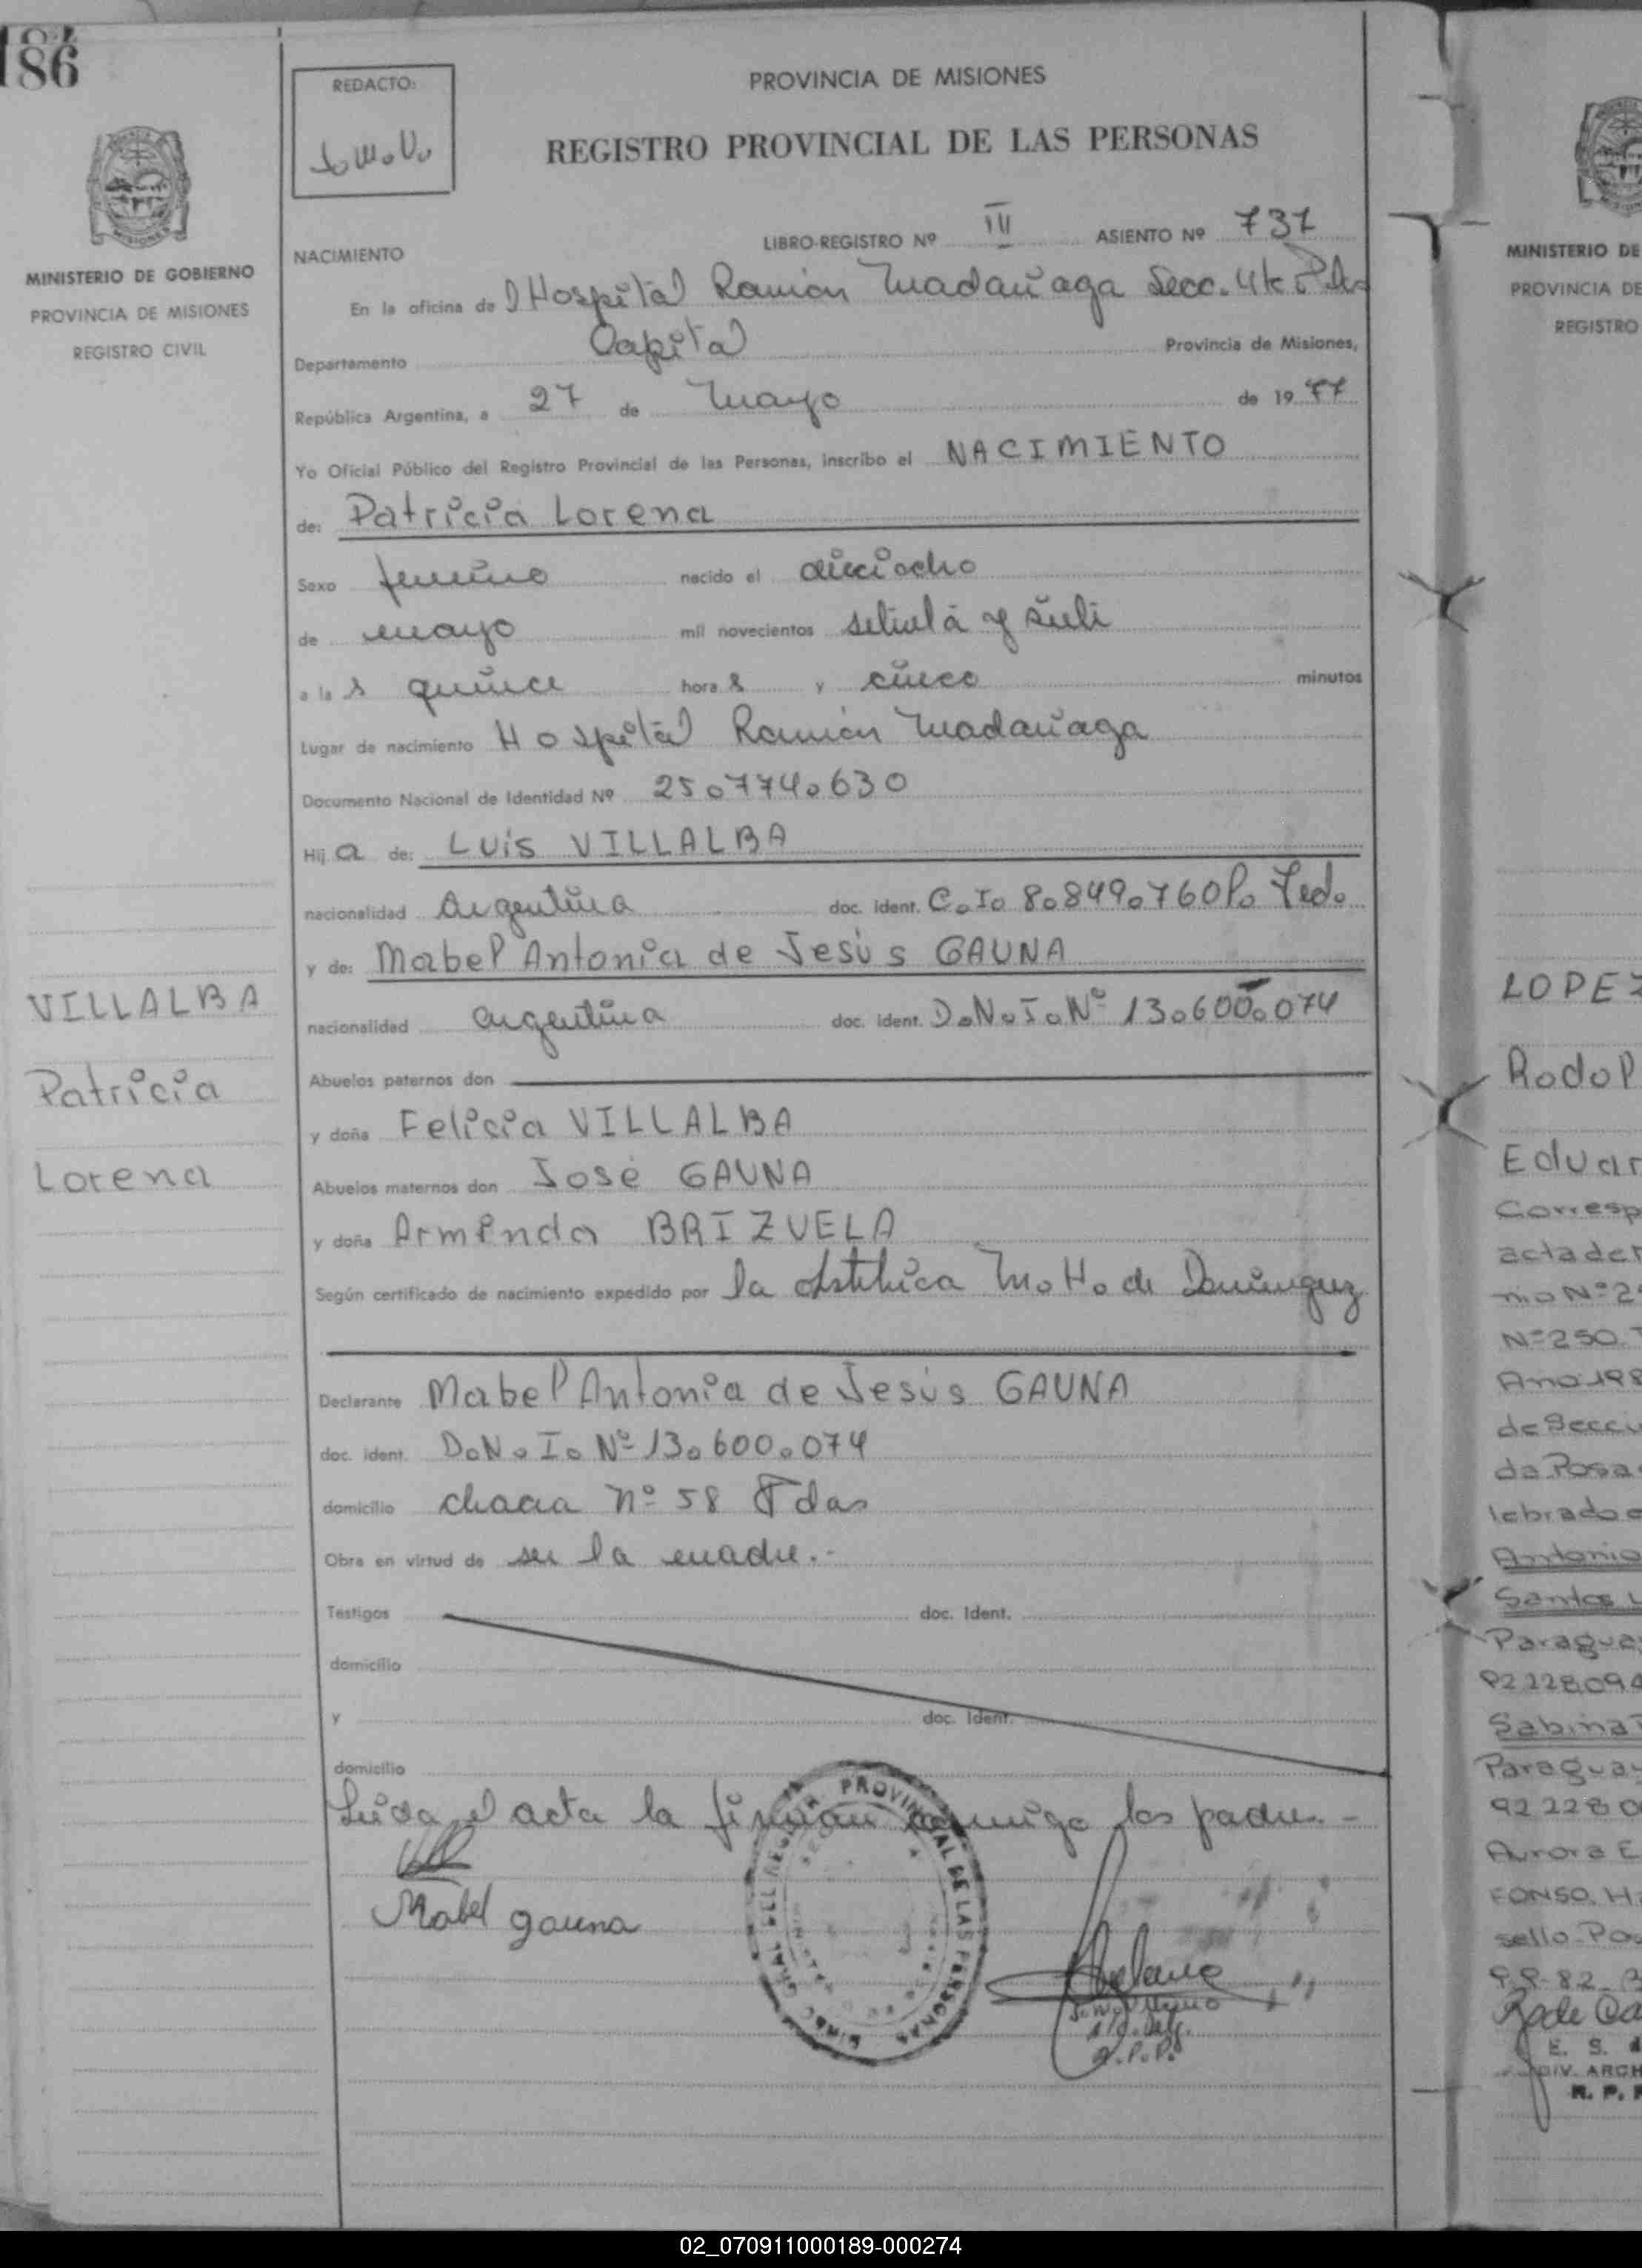 186
REDACTO:
PROVINCIA DE MISIONES
REGISTRO PROVINCIAL DE LAS PERSONAS
MINISTERIO DE GOBIERNO
PROVINCIA DE MISIONES
REGISTRO CIVIL
LIBRO-REGISTRO Nº IV ASIENTO Nº 737
NACIMIENTO
En la oficina de l Hospital Ramón Madariaga Secc. 4ta
Departamento Capital Provincia de Misiones,
República Argentina, a 27 de Mayo de 1977
Yo Oficial Público del Registro Provincial de las Personas, inscribo el NACIMIENTO
de: Patricia Lorena
Sexo femenino nacido el dieciocho
de mayo mil novecientos setenta y siete
a la s quince hora s y cinco minutos
Lugar de nacimiento Hospital Ramón Madariaga
Documento Nacional de Identidad Nº 25.774.630
Hij a de: Luis VILLALBA
nacionalidad Argentina doc. ident. C.I. 8.849.760 P. Fed.
y de: Mabel Antonia de Jesús GAUNA
nacionalidad argentina doc. ident. D.N.I. Nº 13.600.074
Abuelos paternos don
y doña Felicia VILLALBA
Abuelos maternos don José GAUNA
y doña Arminda BRIZUELA
Según certificado de nacimiento expedido por la obstetrica M. H. de Dominguez
Declarante Mabel Antonia de Jesús GAUNA
doc. ident. D.N.I. Nº 13.600.074
domicilio chacra nº 58 Pdas
Obra en virtud de ser la madre.-
Testigos doc. Ident.
domicilio
y doc. Ident.
domicilio
Leida el acta la firman conmigo los padres.-
Mabel Gauna
PROVINCIAL DE LAS PERSONAS
VILLALBA
Patricia
Lorena
MINISTERIO DE
PROVINCIA DE
REGISTRO
LOPEZ
Rodol
Eduar
Corresp
acta de
mo Nº 2
Nº 250
Año 198
de Secci
da Posa
lebrado
Antonio
Santos
Paragua
Sabina
Paraguay
Aurora E
FONSO. H
sello Po
9-9-82
E. S.
DIV. ARCH
R. P.
02_070911000189-000274